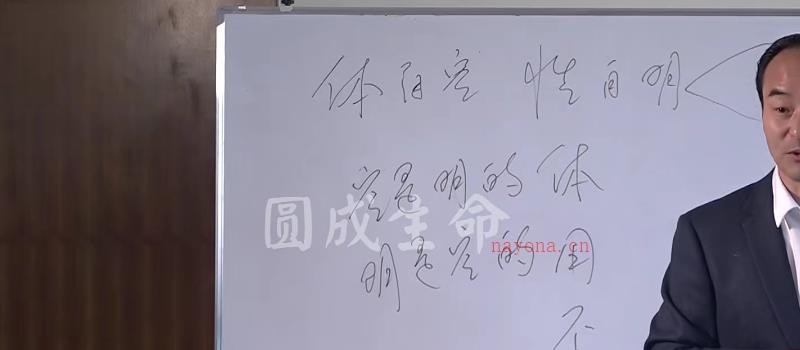 体自空 性自明
空是明的体
圆成生命
nayona.cn
明是空的用
不